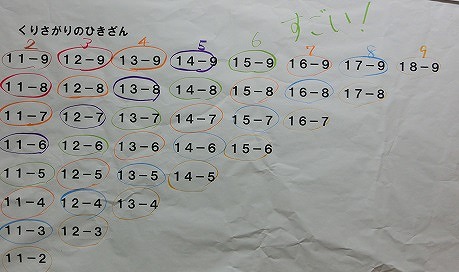 すごい!
くりさがりのひきざん
2 3 4 5 6 7 8 9
11-9 12-9 13-9 14-9 15-9 16-9 17-9 18-9
11-8 12-8 13-8 14-8 15-8 16-8 17-8
11-7 12-7 13-7 14-7 15-7 16-7
11-6 12-6 13-6 14-6 15-6
11-5 12-5 13-5 14-5
11-4 12-4 13-4
11-3 12-3
11-2